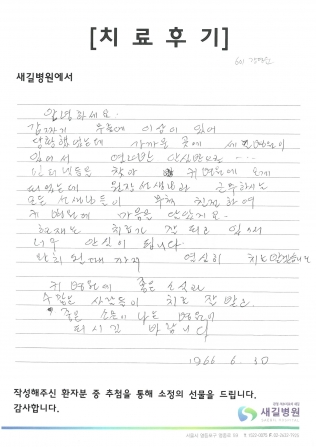 [치료후기]
새길병원에서
안녕하세요.
갑자기 무릎에 이상이 있어
당황했었는데 가까운 곳에 새길병원이
있어서
인터넷등을 찾아 귀 병원에 오게
되었는데 원장선생님과 근무하시는
모든 선생님들이 무척 친절하여
귀 병원에 마음을 안았지요.
현재는 치료가 잘 되고 있어
너무 안심이 됩니다.
완쾌 될때 까지 열심히
귀 병원에 좋은 소식과
수많은 사람들이 치료 잘 받고
좋은 소문이 나는 병원이
되시길 바랍니다
1966. 6. 30
작성해주신 환자분 중 추첨을 통해 소정의 선물을 드립니다.
감사합니다.
새길병원